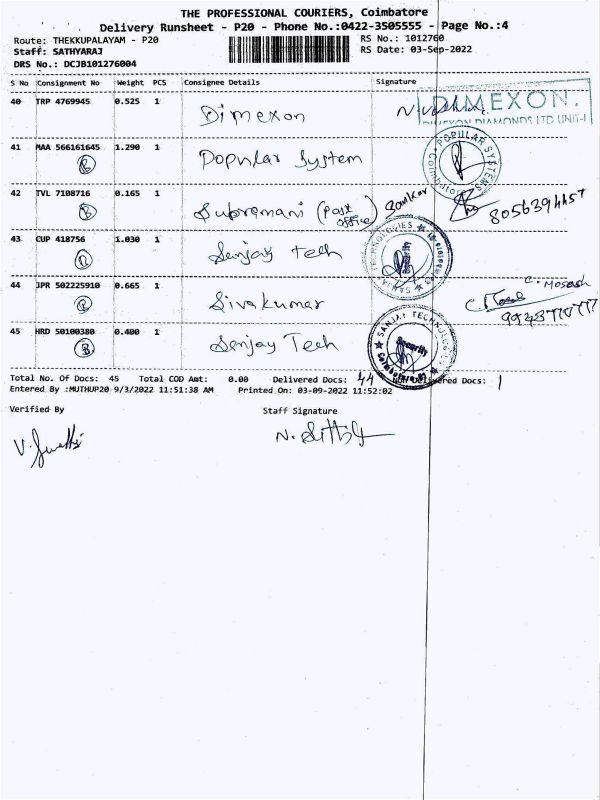 THE PROFESSIONAL COURIERS, Coimbatore
Delivery Runsheet - P20 - Phone No.:0422-3505555 - Page No.:4
Route: THEKKUPALAYAM - P20
RS No.: 1012760
Staff: SATHYARAJ
RS Date: 03-Sep-2022
DRS No.: DCJB101276004
S No Consignment No Weight PCS Consignee Details Signature
40 TRP 4769945 0.525 1 Dimexon
DIMEXON.
DIMEXON DIAMONDS LTD UNIT-I
41 MAA 566161645 1.290 1 Popular System
POPULAR SYSTEMS
42 TVL 7108716 0.165 1 Subremani (Post office)
43 CUP 418756 1.030 1 Senjay tech
SANJAY TECHNOLOGIES
Security
44 JPR 502225910 0.665 1 Sivakumar
45 HRD 50100380 0.400 1 Senjay Tech
SANJAY TECHNOLOGIES
Security
Total No. Of Docs: 45 Total COD Amt: 0.00 Delivered Docs: 44 Non Delivered Docs: 1
Entered By :MUTHUP20 9/3/2022 11:51:38 AM Printed On: 03-09-2022 11:52:02
Verified By
Staff Signature